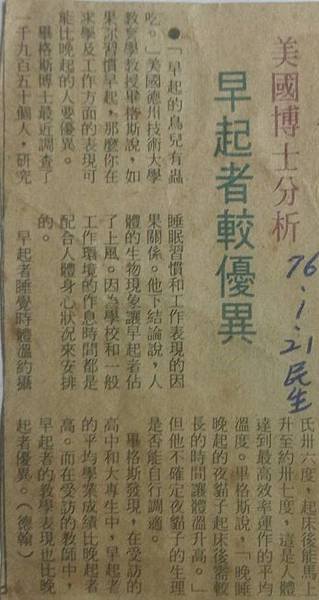 美國博士分析
早起者較優異
76.1.21 民生
●「早起的鳥兒有蟲
吃。」美國德州技術大學
教育學教授畢格斯說，如
果你習慣早起，那麼你在
求學及工作方面的表現可
能比晚起的人要優異。
畢格斯博士最近調查了
一千九百五十個人，研究
睡眠習慣和工作表現的因
果關係。他下結論說，人
體的生物現象讓早起者佔
了上風。因為學校和一般
工作環境的作息時間都是
配合人體身心狀況來安排
的。
早起者睡覺時體溫約攝
氏卅六度，起床後能馬上
升至約卅七度，這是人體
達到最高效率運作的平均
溫度。畢格斯說，「晚睡
晚起的夜貓子起床後需較
長的時間讓體溫升高。」
但他不確定夜貓子的生理
是否能自行調適。
畢格斯發現，在受訪的
高中和大專生中，早起者
的平均學業成績比晚起者
高。而在受訪的教師中，
早起者的教學表現也比晚
起者優異。（德翰）